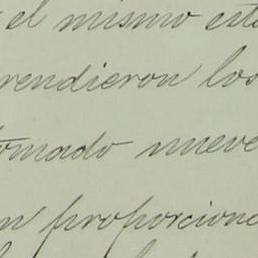 el mismo est
rendieron los
tomado nueve
n proporcion